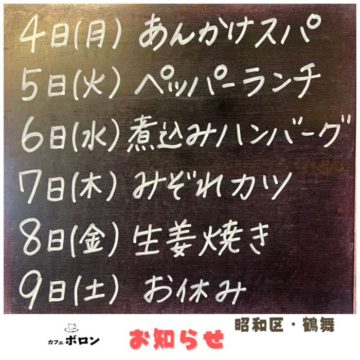 4日(月) あんかけスパ
5日(火) ペッパーランチ
6日(水) 煮込みハンバーグ
7日(木) みぞれカツ
8日(金) 生姜焼き
9日(土) お休み
カフェ ボロン
お知らせ
昭和区・鶴舞